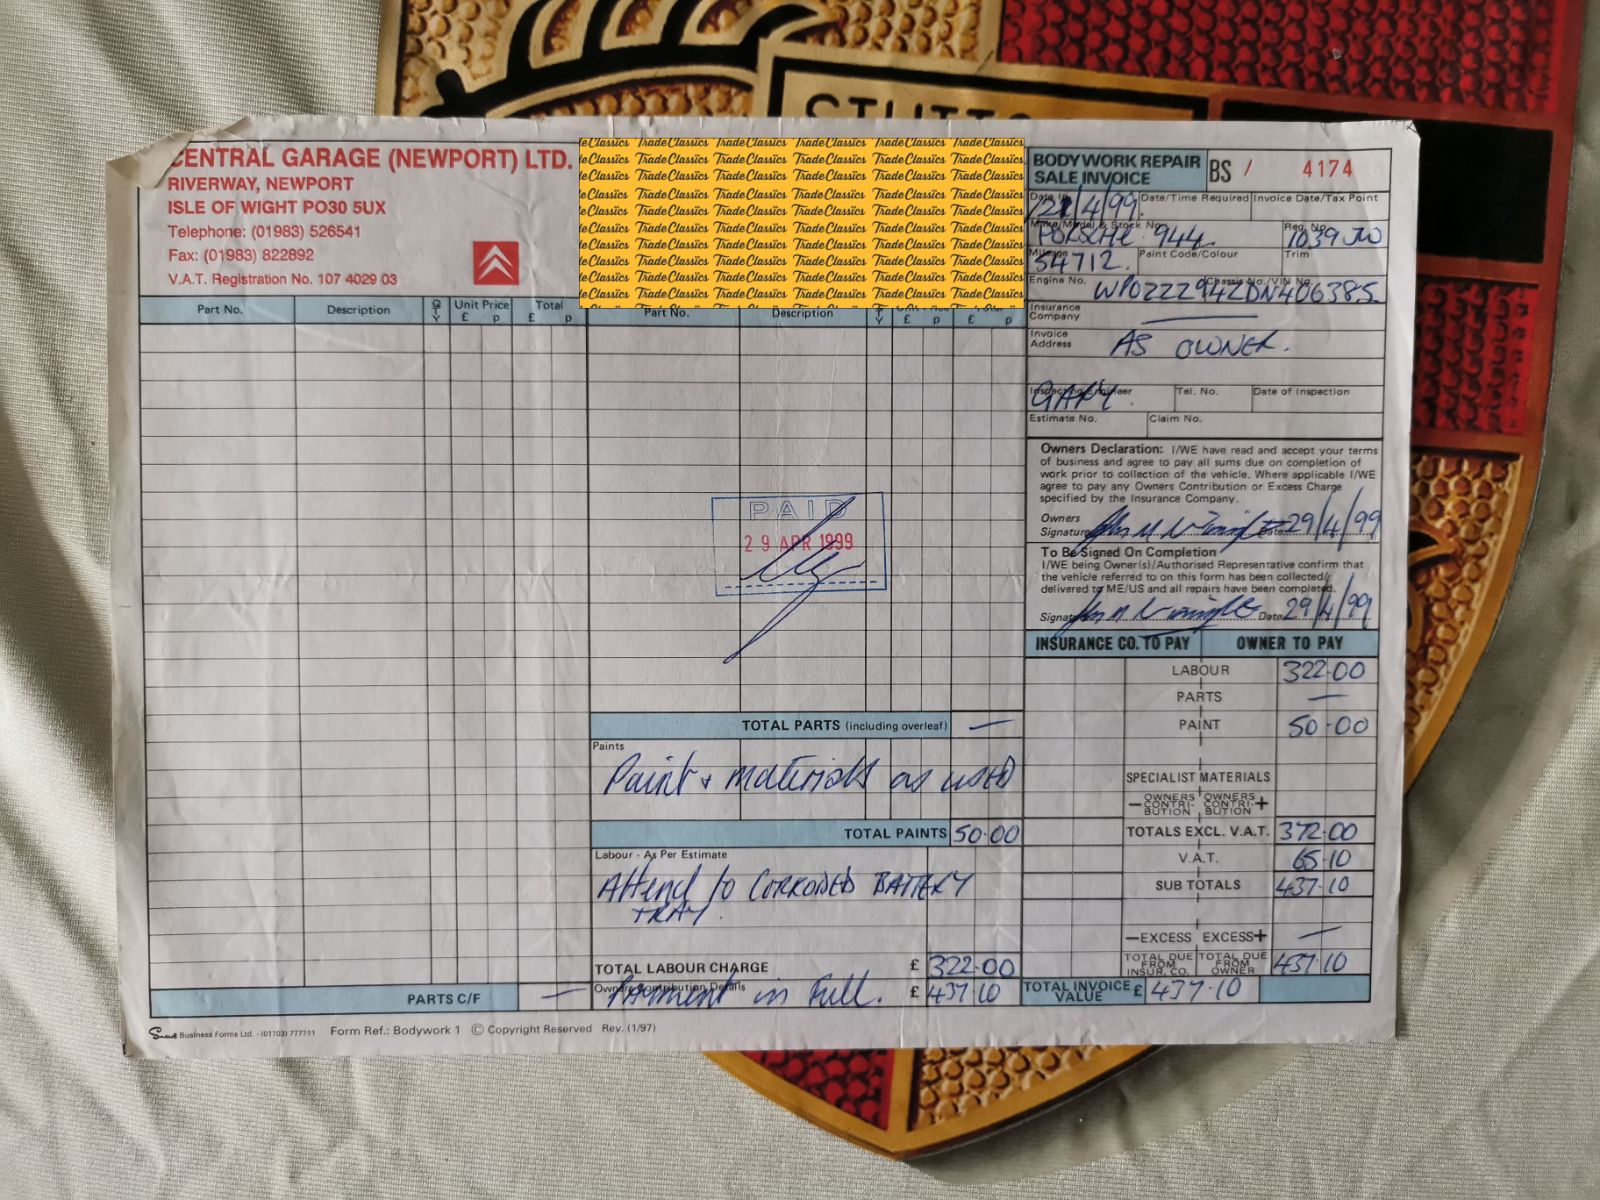 STUTTG
CENTRAL GARAGE (NEWPORT) LTD.
RIVERWAY, NEWPORT
ISLE OF WIGHT PO30 5UX
Telephone: (01983) 526541
Fax: (01983) 822892
V.A.T. Registration No. 107 4029 03
Trade Classics
BODYWORK REPAIR
SALE INVOICE
BS / 4174
Date In Date/Time Required Invoice Date/Tax Point
/4/99.
Make/Model & Stock No. Reg. No.
PORSCHE 944 1039 JW
Mileage Paint Code/Colour Trim
54712.
Engine No. Chassis No./VIN No.
Insurance
Company
Invoice
Address AS OWNER.
Inspecting Engineer Tel. No. Date of Inspection
GARY.
Estimate No. Claim No.
Part No. Description QTY Unit Price £ p Total £ p
Part No. Description £ p £ p
Owners Declaration: I/WE have read and accept your terms
of business and agree to pay all sums due on completion of
work prior to collection of the vehicle. Where applicable I/WE
agree to pay any Owners Contribution or Excess Charge
specified by the Insurance Company.
Owners
Signature Date 29/4/99
To Be Signed On Completion
I/WE being Owner(s)/Authorised Representative confirm that
the vehicle referred to on this form has been collected/
delivered to ME/US and all repairs have been completed.
Signature Date 29/4/99
PAID
29 APR 1999
INSURANCE CO. TO PAY OWNER TO PAY
LABOUR 322.00
PARTS —
PAINT 50.00
SPECIALIST MATERIALS
— OWNERS CONTRI-BUTION OWNERS CONTRI-BUTION +
TOTALS EXCL. V.A.T. 372.00
V.A.T. 65.10
SUB TOTALS 437.10
—EXCESS EXCESS+ —
TOTAL DUE FROM INSUR. CO. TOTAL DUE FROM OWNER 437.10
TOTAL INVOICE VALUE £ 437.10
TOTAL PARTS (including overleaf) —
Paints
Paint + materials as used
TOTAL PAINTS 50.00
Labour - As Per Estimate
Attend to CORRODED BATTERY
TRAY.
TOTAL LABOUR CHARGE £ 322.00
Owners Contribution Details
Payment in Full. £ 437.10
PARTS C/F —
Business Forms Ltd. - (01703) 777711 Form Ref.: Bodywork 1 © Copyright Reserved Rev. (1/97)